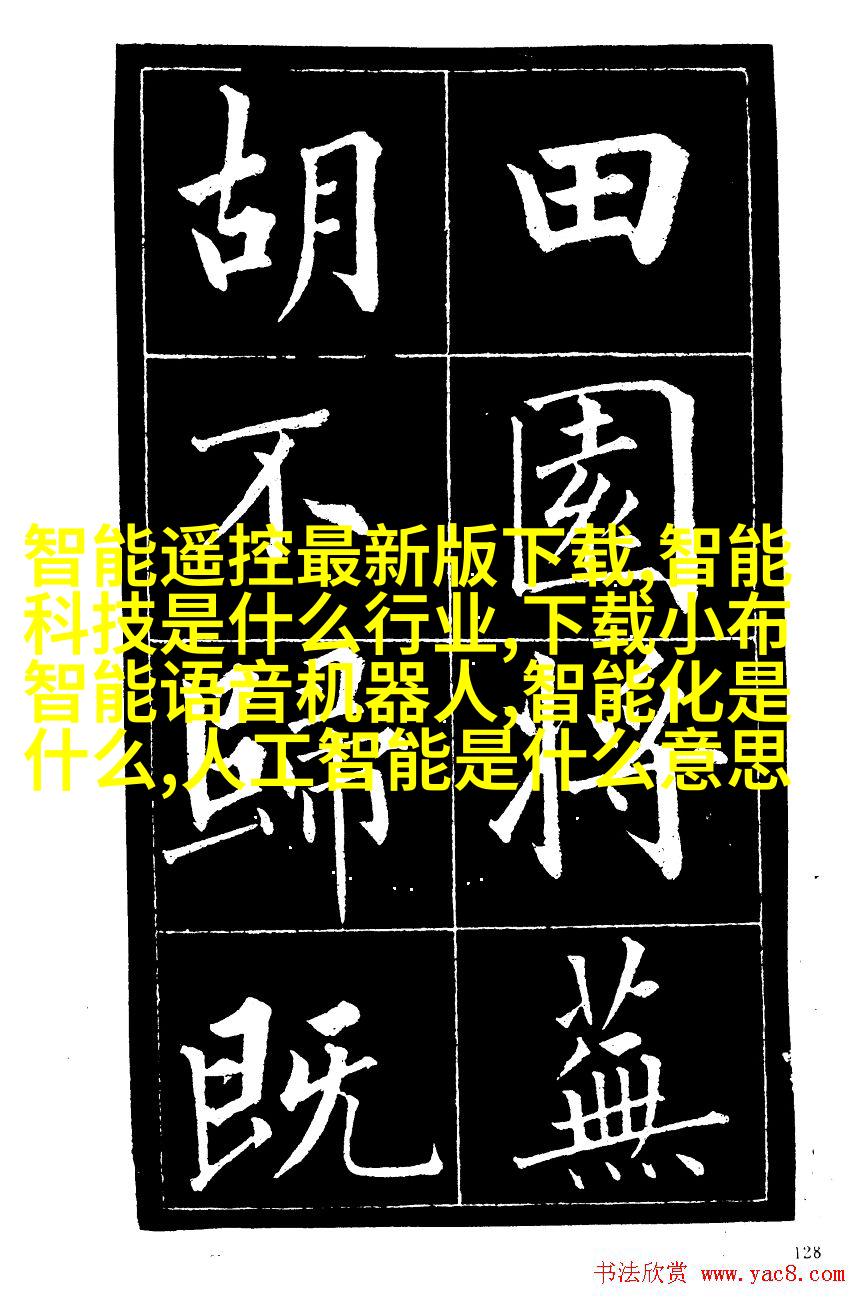 田園将蕪
胡不歸既
智能遥控最新版下载,智能
科技是什么行业,下载小布
智能语音机器人,智能化是
什么,人工智能是什么意思
128
书法欣赏 www.yac8.com